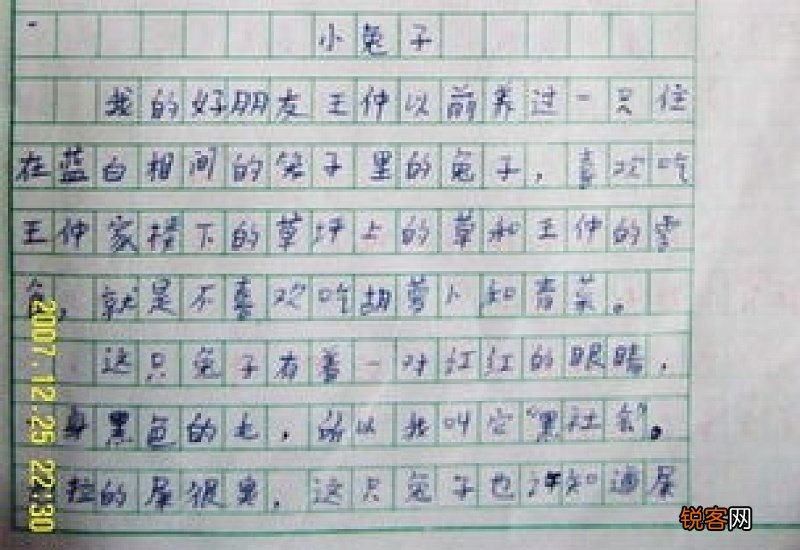 小兔子
我的好朋友王仲以前养过一只住
在蓝白相间的笼子里的兔子，喜欢吃
王仲家楼下的草坪上的草和王仲的零
食，就是不喜欢吃胡萝卜和青菜。
这只兔子有着一对红红的眼睛，
身黑色的毛，所以我叫它“黑社会”。
拉的屎很臭，这只兔子也许知道屎
2007.12.25 22:30
锐客网